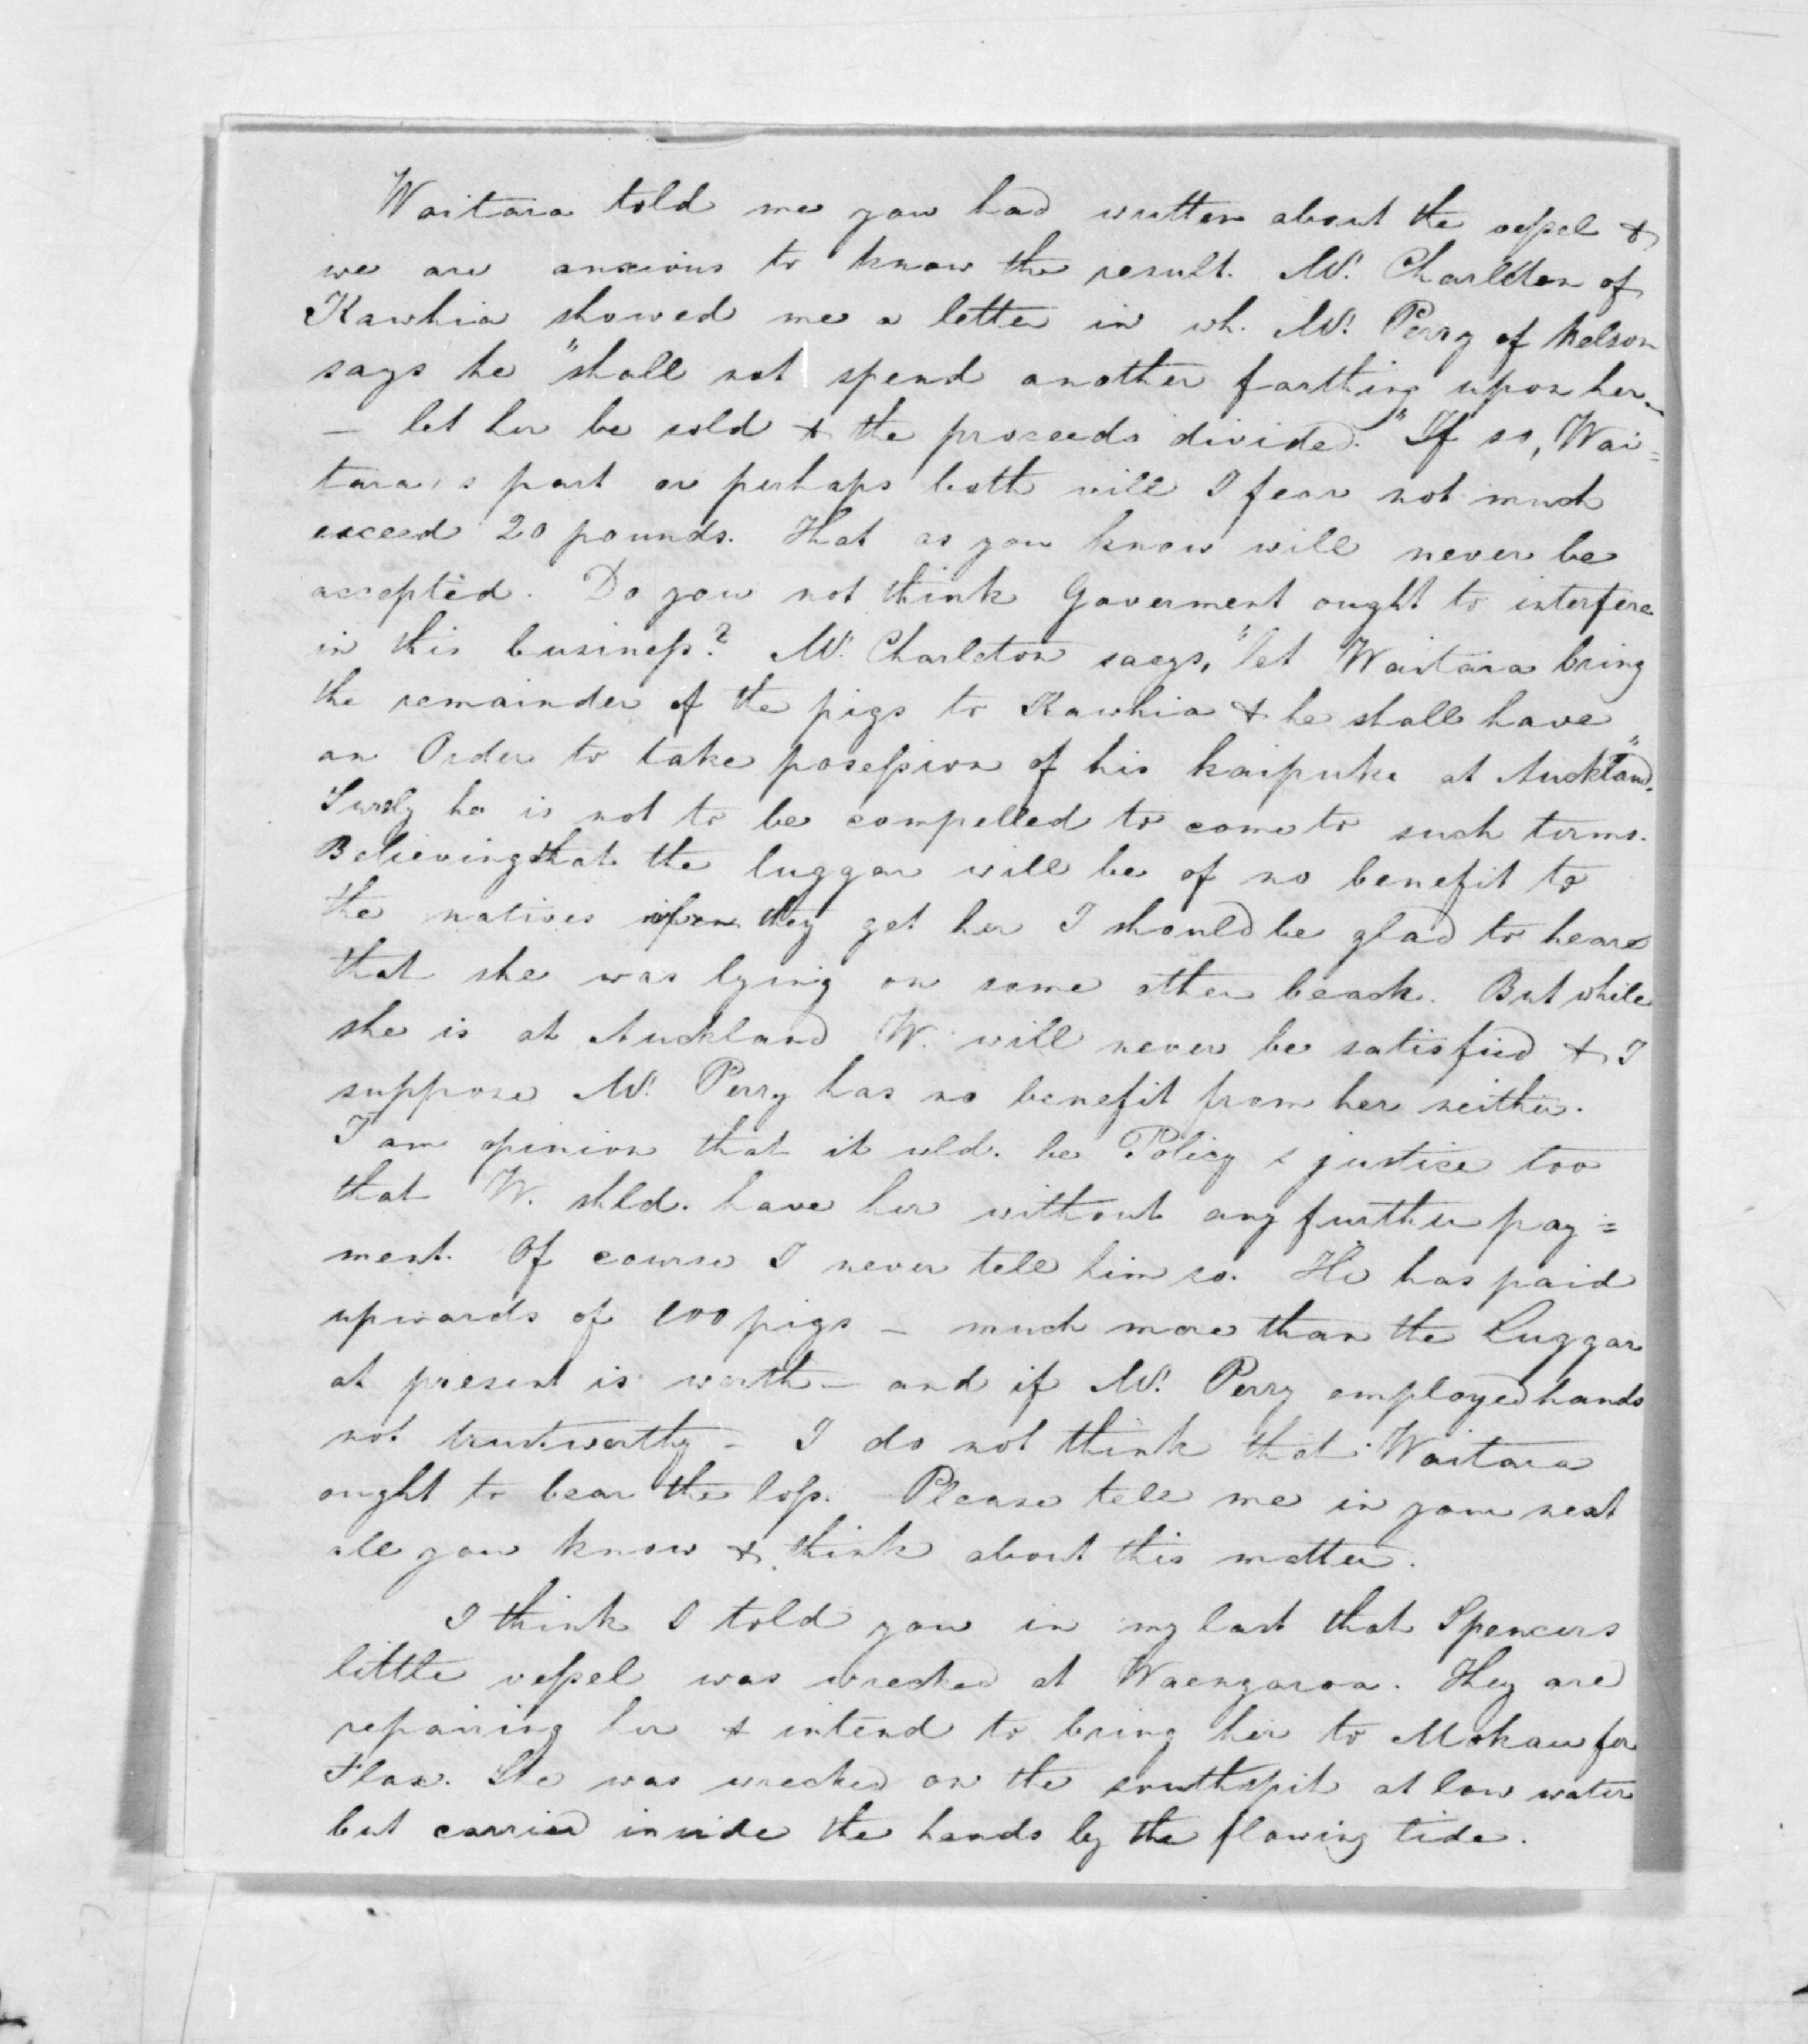 Waitara told me you had written about the vessel &
we are anxious to know the result. Mr. Charlton of
Kawhia showed me a letter in wh. Mr. Perry of Nelson
says he "shall not spend another farthing upon her
— let her be sold & the proceeds divided." If so, Wai=
tara,s part or perhaps both will I fear not much
exceed 20 pounds. That as you know will never be
accepted. Do you not think Goverment ought to interfere
in this business? Mr. Charleton says, "let Waitara bring
the remainder of the pigs to Kawhia & he shall have
an Order to take posession of his kaipuke at Auckland."
Surely he is not to be compelled to come to such terms.
Believing that the luggar will be of no benefit to
the natives when they get her I should be glad to hear
that she was lying on some other beach. But while
she is at Auckland W. will never be satisfied & I
suppose Mr. Perry has no benefit from her neither.
I am opinion that it wld. be Policy & justice too
that W. shld. have her without any further pay=
ment. Of course I never tell him so. He has paid
upwards of 100 pigs — much more than the Luggar
at present is worth — and if Mr. Perry employed hands
not trustworthy — I do not think that Waitara
ought to bear the loss. Please tell me in your next
all you know & think about this matter.
I think I told you in my last that Spencers
little vessel was wrecked at Waengaroa. They are
repairing her & intend to bring her to Mokau for
Flax. She was wrecked on the southspit at low water
but carried inside the heads by the flowing tide.